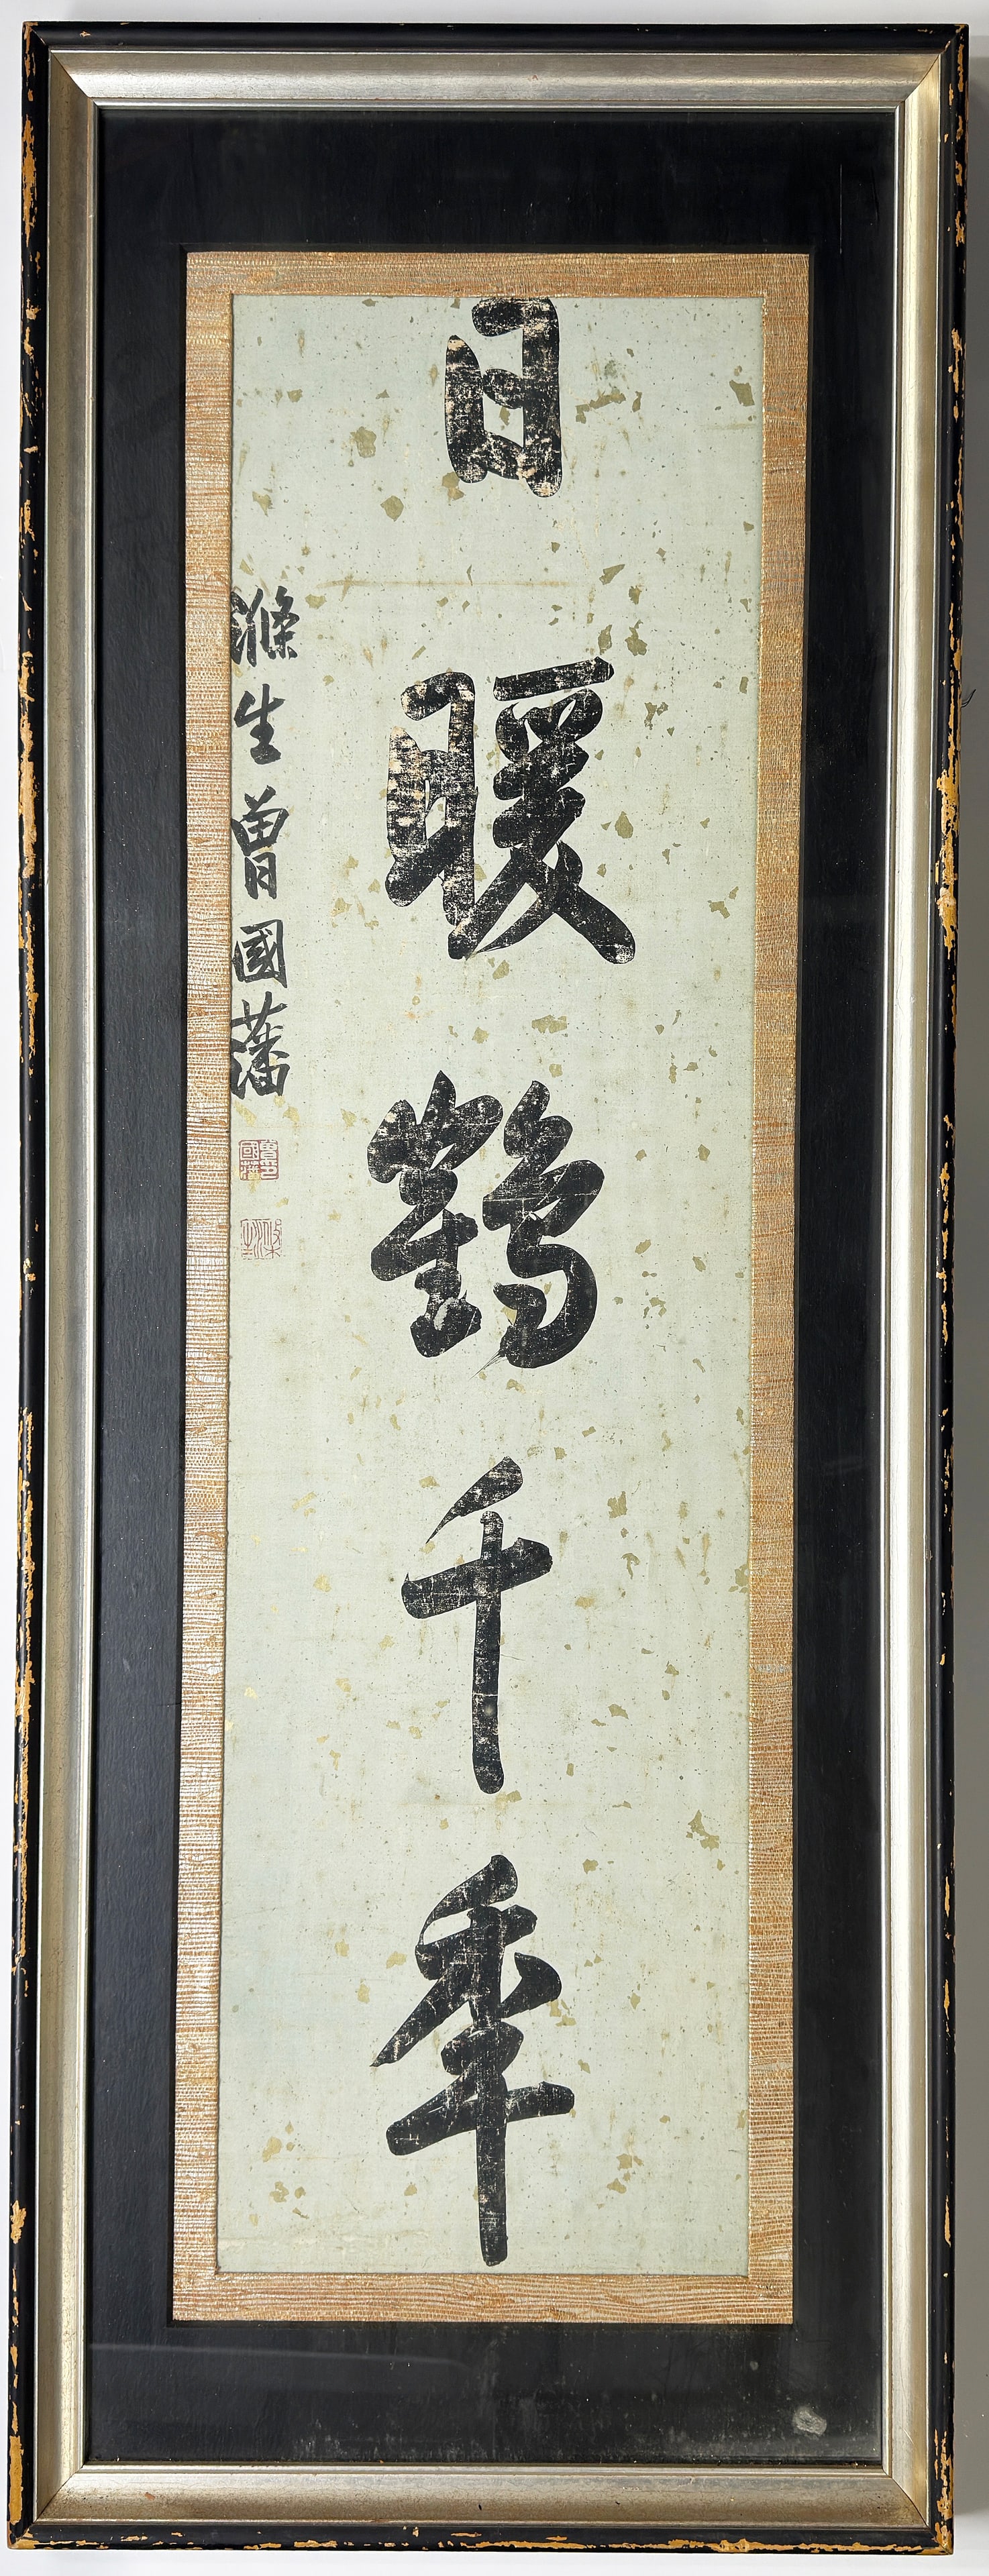 日暖鶴千年
滌生曾國藩
曾國藩印
滌生